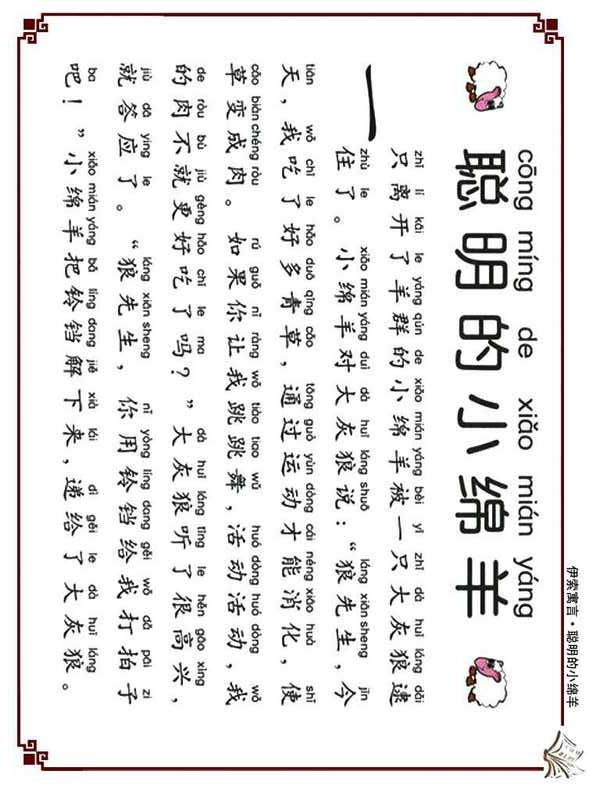 伊索寓言·聪明的小绵羊
cōng míng de xiǎo mián yáng
聪明的小绵羊
zhī lí kāi le yáng qún de xiǎo mián yáng bèi yī zhī dà huī láng dǎi
一只离开了羊群的小绵羊被一只大灰狼逮
zhù le xiǎo mián yáng duì dà huī láng shuō láng xiān sheng jīn
住了。小绵羊对大灰狼说：“狼先生，今
tiān wǒ chī le hǎo duō qīng cǎo tōng guò yùn dòng cái néng xiāo huà shǐ
天，我吃了好多青草，通过运动才能消化，使
cǎo biàn chéng ròu rú guǒ nǐ ràng wǒ tiào tiao wǔ huó dòng huó dòng wǒ
草变成肉。如果你让我跳跳舞，活动活动，我
de ròu bù jiù gèng hǎo chī le ma dà huī láng tīng le hěn gāo xìng
的肉不就更好吃了吗？”大灰狼听了很高兴，
jiù dā ying le láng xiān sheng nǐ yòng líng dang gěi wǒ dǎ pāi zi
就答应了。“狼先生，你用铃铛给我打拍子
ba xiǎo mián yáng bǎ líng dang jiě xià lái dì gěi le dà huī láng
吧！”小绵羊把铃铛解下来，递给了大灰狼。